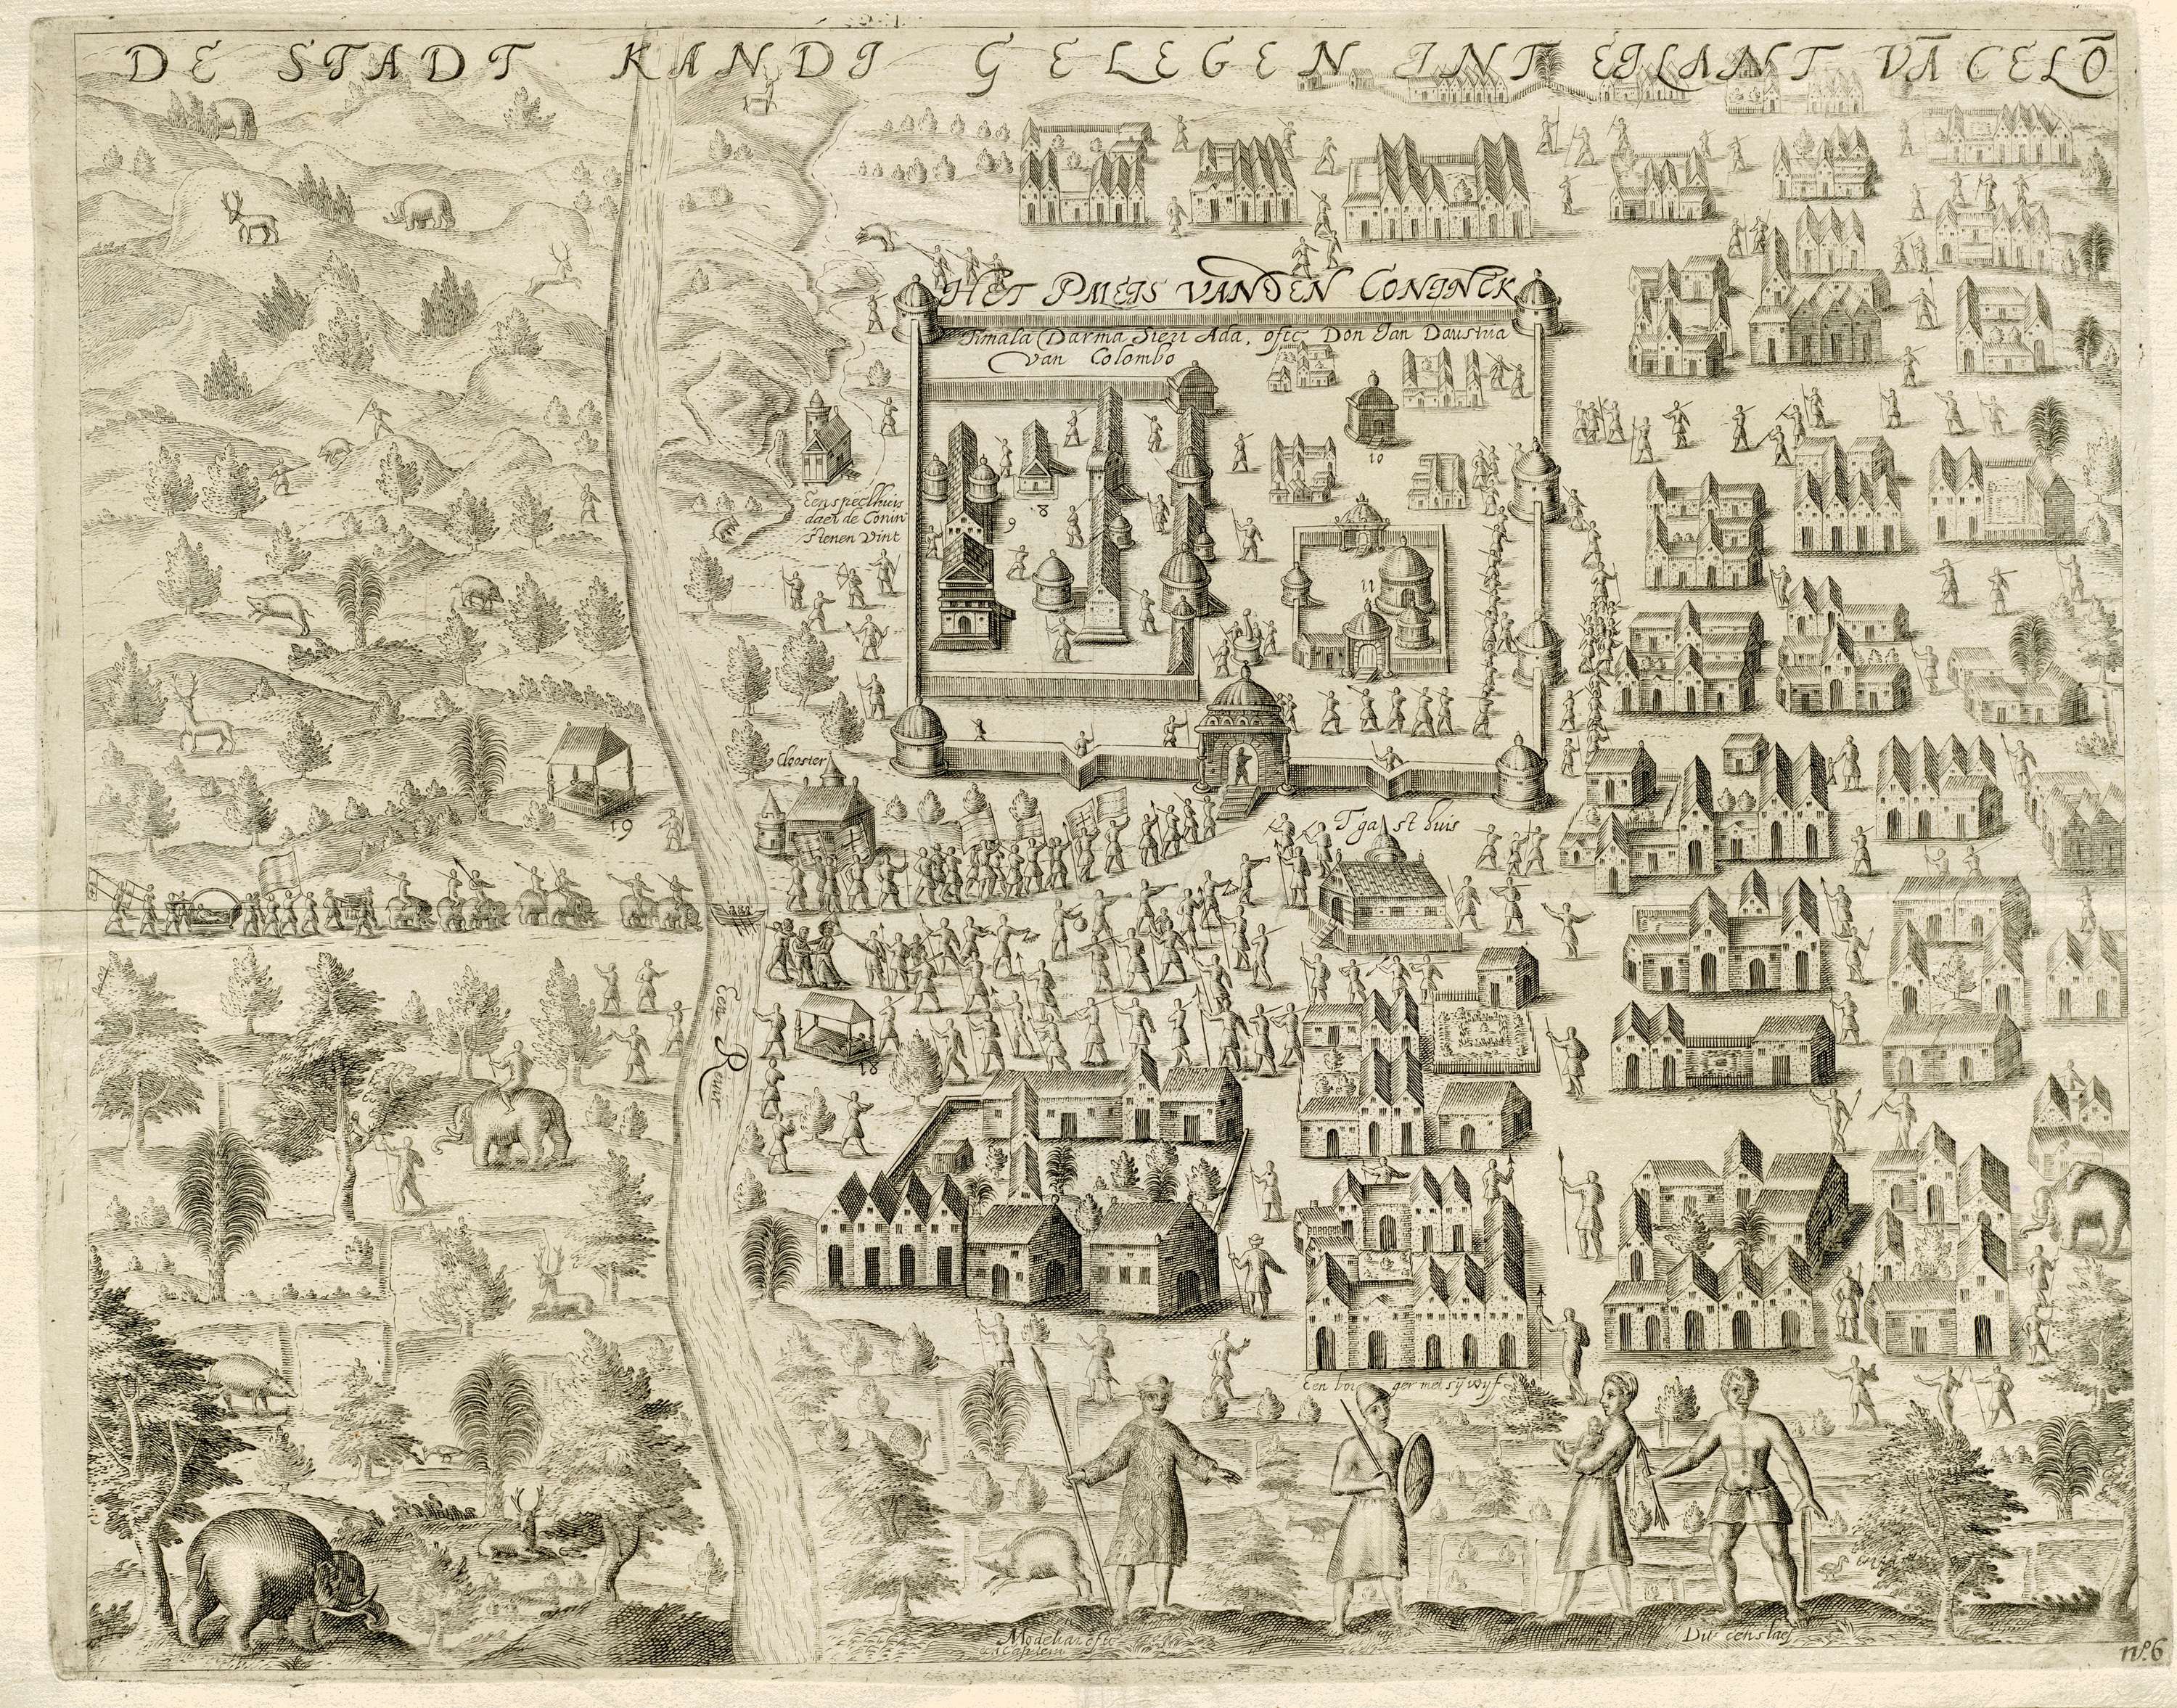 DE STADT KANDI GELEGEN INT EILANT VĀ CELŌ
HET PALEIS VANDEN CONINCK
Fimala Darma Sieri Ada, ofte Don Jan Daustria
van Colombo
10
Een speelhuis
daer de Conin
stenen Vint
8
9
11
Clooster
T gast huis
19
Een Revier
18
Een borger met sÿ wÿf
Modeliar ofte
Capitein
Dit een slaef
nº. 6